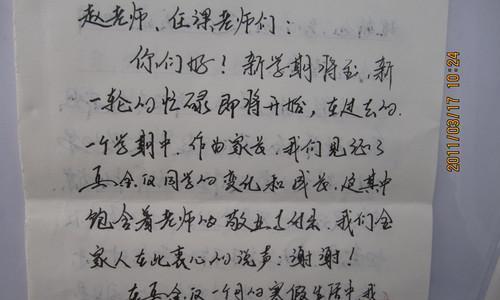 赵老师、任课老师们：
你们好！新学期将至，新
一轮的忙碌即将开始，在过去的
一个学期中，作为家长，我们见证了
同学的变化和成长，这其中
饱含着老师的敬业与付出，我们全
家人在此衷心的说声：谢谢！
在 一个月的寒假生活中，我
2011/03/17 10:24